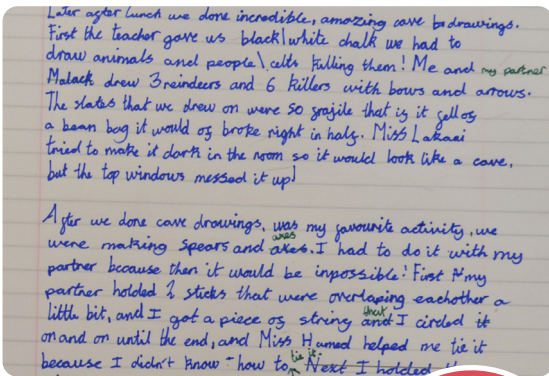 Later after lunch we done incredible, amazing cave bodrawings.
First the teacher gave us black\white chalk we had to
draw animals and people\celts killing them! Me and my partner
Malack drew 3 reindeers and 6 killers with bows and arrows.
The slates that we drew on were so frajile that if it fell of
a bean bag it would of broke right in half. Miss Lakaei
tried to make it dark in the room so it would look like a cave,
but the top windows messed it up!
After we done cave drawings, was my favourite activity, we
were making spears and axes. I had to do it with my
axes
partner because then it would be inpossible! First my
partner holded 2 sticks that were overlaping eachother a
little bit, and I got a piece of string and I circled it
that
on and on until the end, and Miss Hamed helped me tie it
because I didn't know how to Next I holded
tie it.